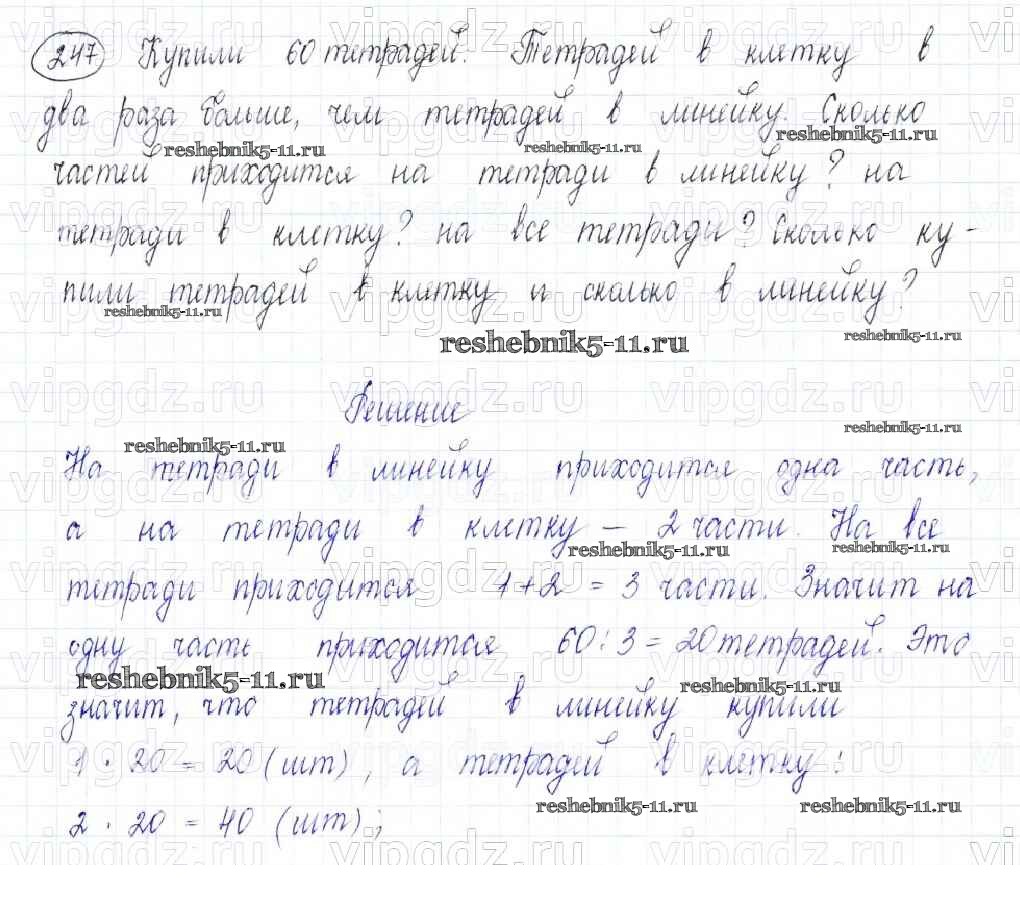 247 Купили 60 тетрадей. Тетрадей в клетку в
два раза больше, чем тетрадей в линейку. Сколько
частей приходится на тетради в линейку? на
тетради в клетку? на все тетради? Сколько ку-
пили тетрадей в клетку и сколько в линейку?
reshebnik5-11.ru
Решение
На тетради в линейку приходится одна часть,
а на тетради в клетку – 2 части. На все
тетради приходится 1+2 = 3 части. Значит на
одну часть приходится 60:3 = 20 тетрадей. Это
значит, что тетрадей в линейку купили
1 · 20 = 20 (шт), а тетрадей в клетку:
2 · 20 = 40 (шт);
vipgdz.ru